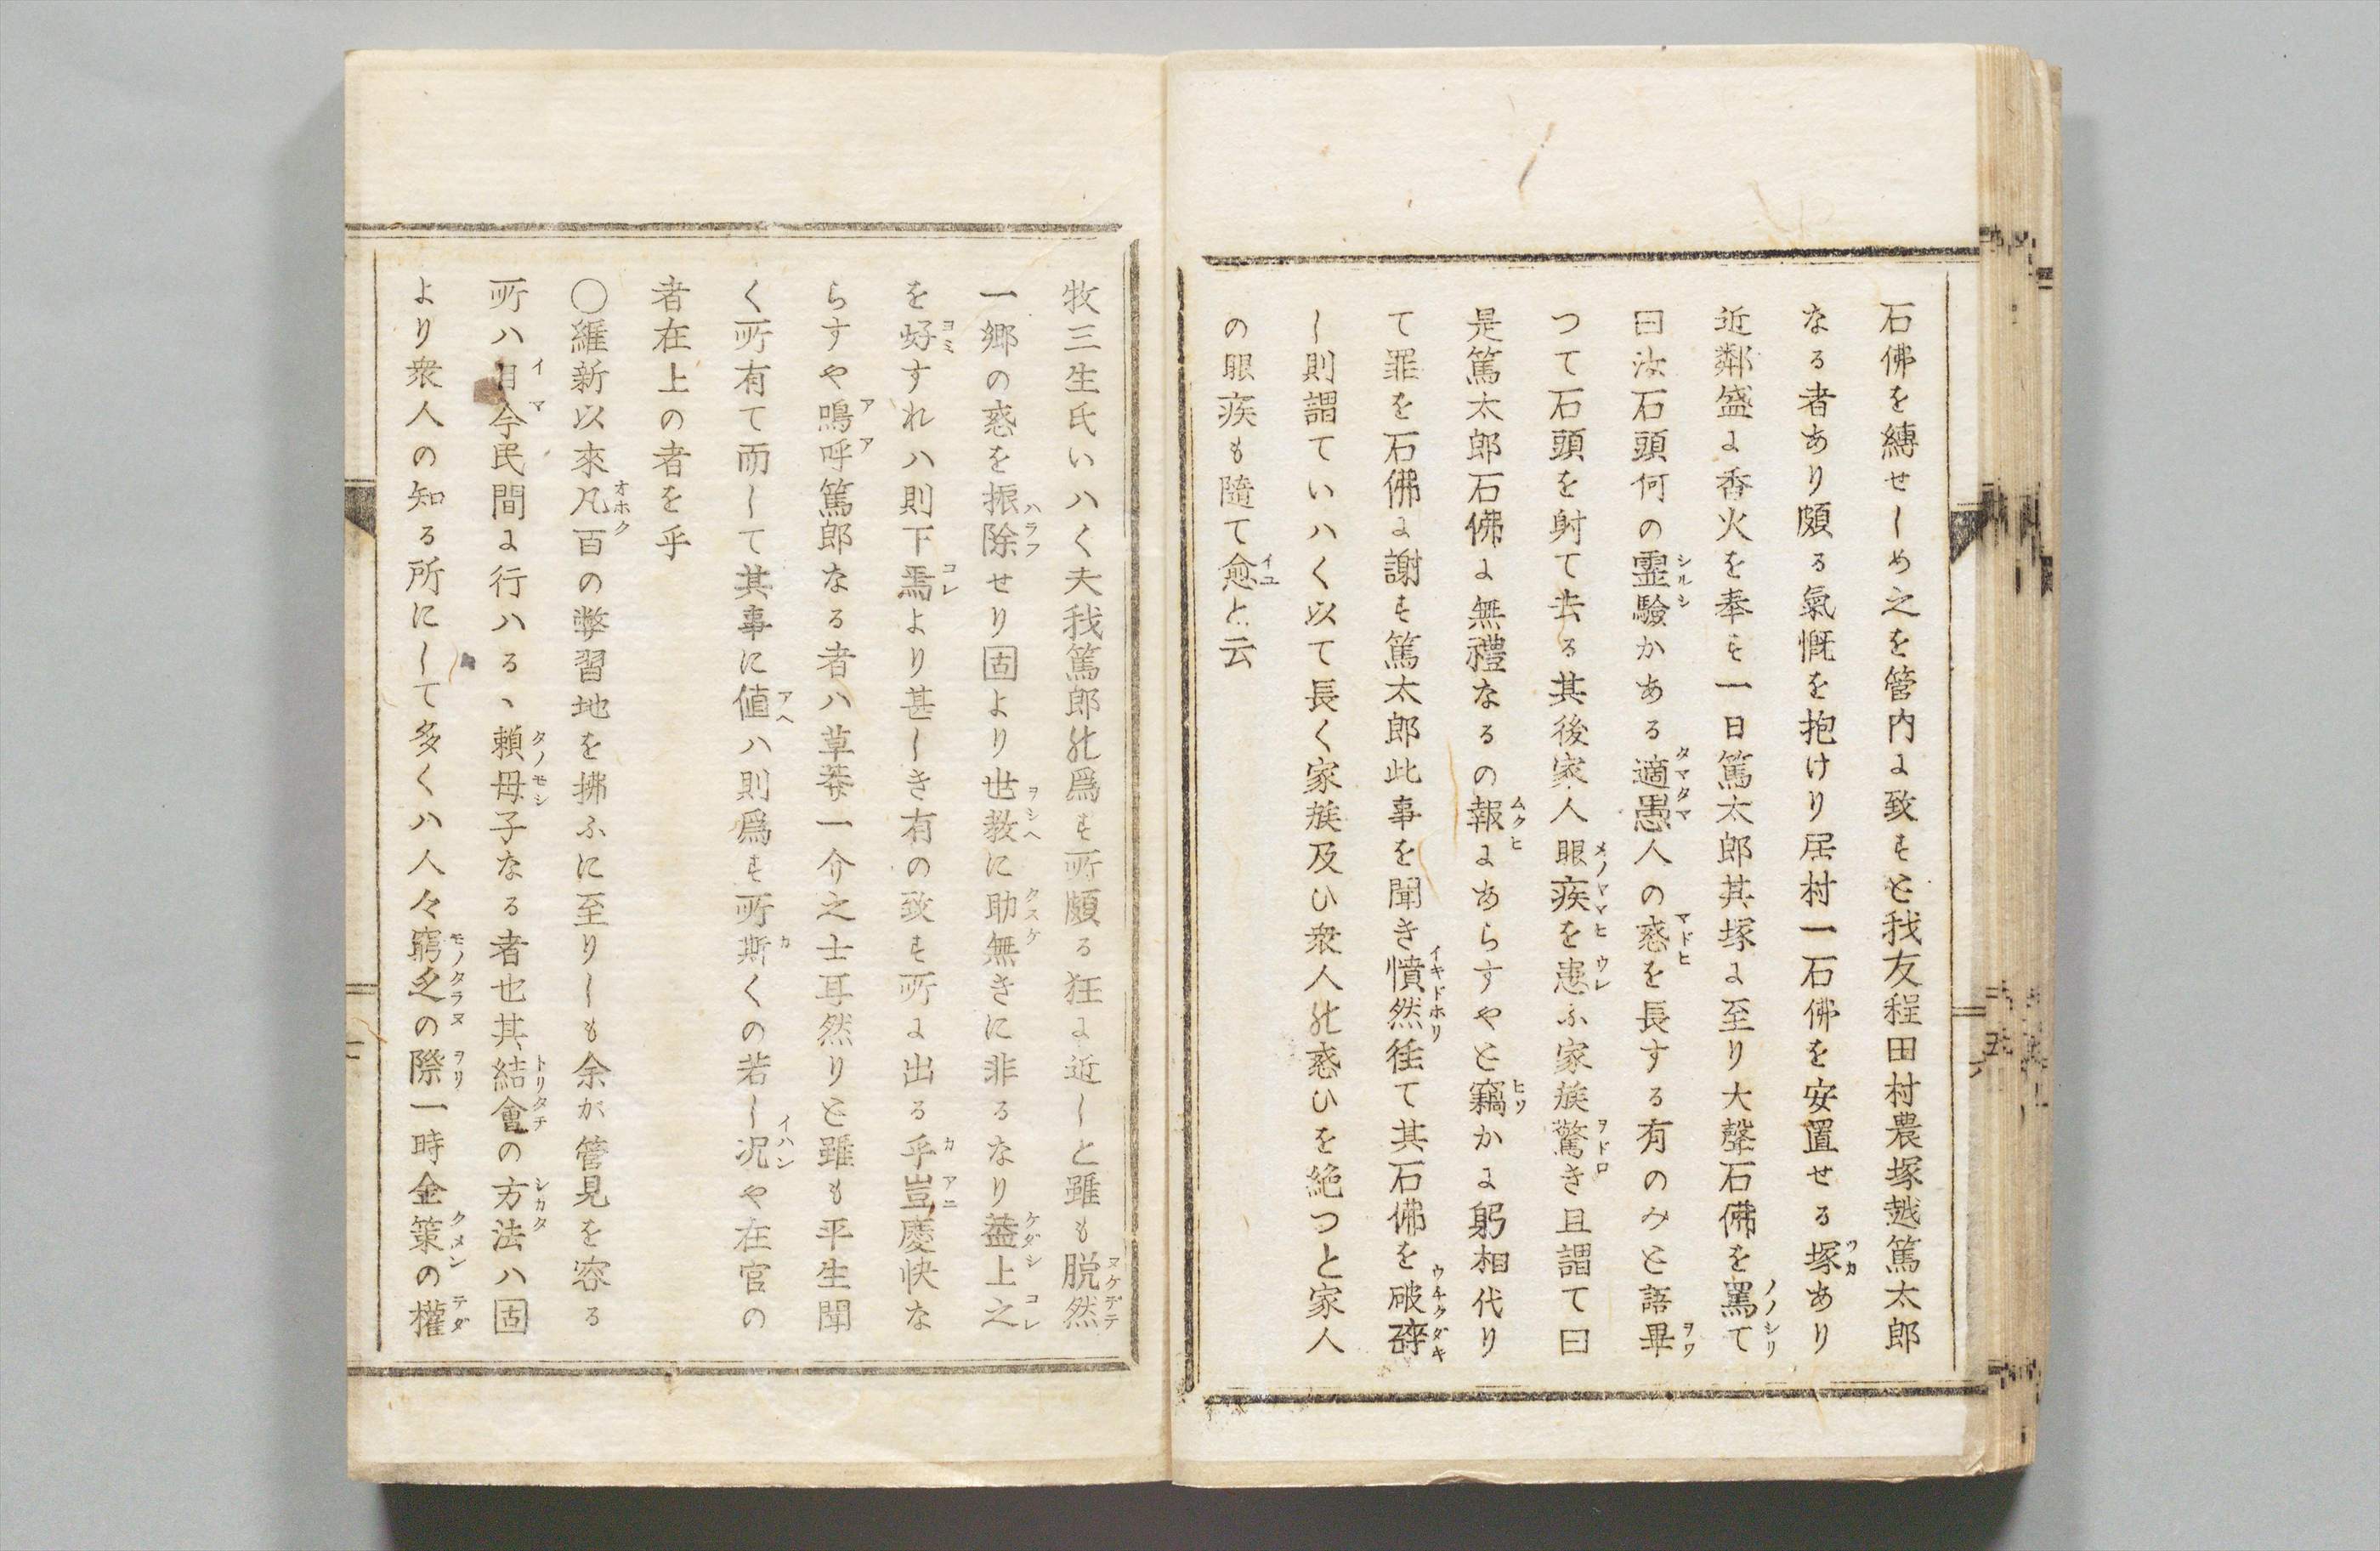 石佛を縛せしめ之を管内に致すと我友程田村農塚越篤太郎
なる者あり頗る氣慨を抱けり居村一石佛を安置せる塚あり
近鄰盛に香火を奉す一日篤太郎其塚に至り大聲石佛を罵て
曰汝石頭何の霊驗かある適愚人の惑を長する有のみと語畢
つて石頭を射て去る其後家人眼疾を患ふ家族驚き且謂て曰
是篤太郎石佛に無禮なるの報にあらすやと竊かに躬相代り
て罪を石佛に謝す篤太郎此事を聞き憤然徃て其石佛を破碎
し則謂ていハく以て長く家族及ひ衆人の惑ひを絶つと家人
の眼疾も隨て愈と云
牧三生氏いハく夫我篤郎の爲す所頗る狂に近しと雖も脱然
一郷の惑を振除せり固より世教に助無きに非るなり蓋上之
を好すれハ則下焉より甚しき有の致す所に出る乎豈慶快な
らすや鳴呼篤郎なる者ハ草莽一介之士耳然りと雖も平生聞
く所有て而して其事に値ハ則爲す所斯くの若し况や在官の
者在上の者を乎
〇維新以來凡百の弊習地を拂ふに至りしも余が管見を容る
所ハ目今民間に行ハるヽ頼母子なる者也其結會の方法ハ固
より衆人の知る所にして多くハ人々窮乏の際一時金策の權